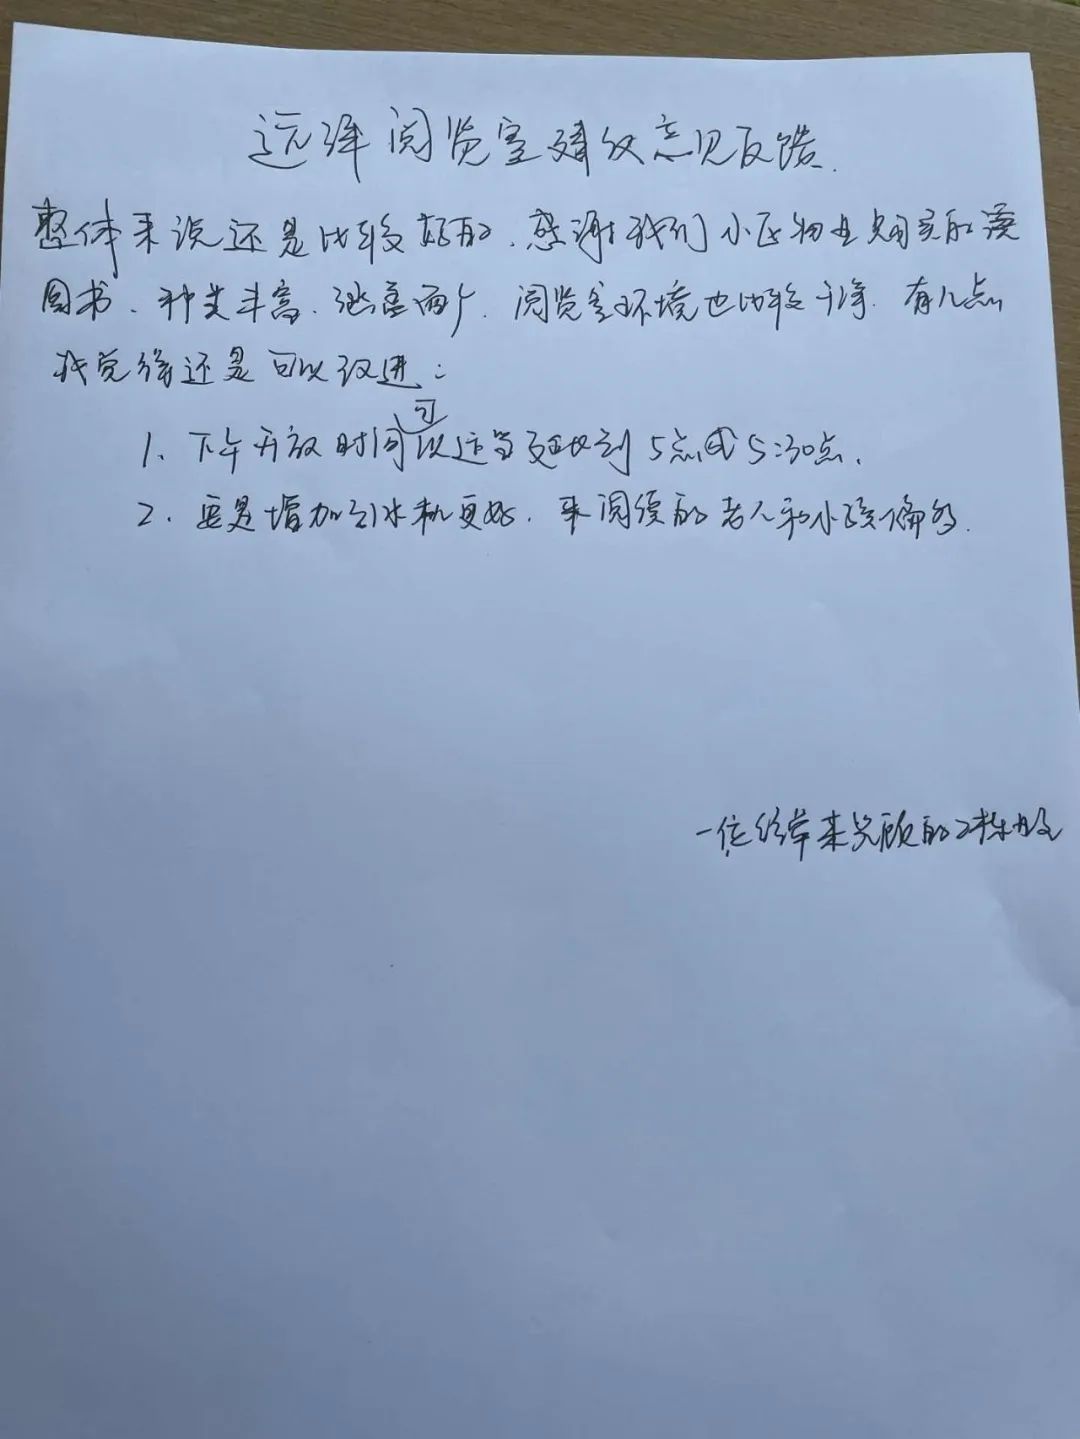 远洋阅览室建设意见反馈.
整体来说还是比较好的.感谢我们小区物业购买的
图书、种类丰富.涵盖面广.阅览室环境也比较干净.有几点
我觉得还是可以改进:
1、下午开放时间可以适当延时到5点或5:30点.
2、要是增加引水机更好.来阅读的老人和小孩偏多.
一位经常来光顾的2栋